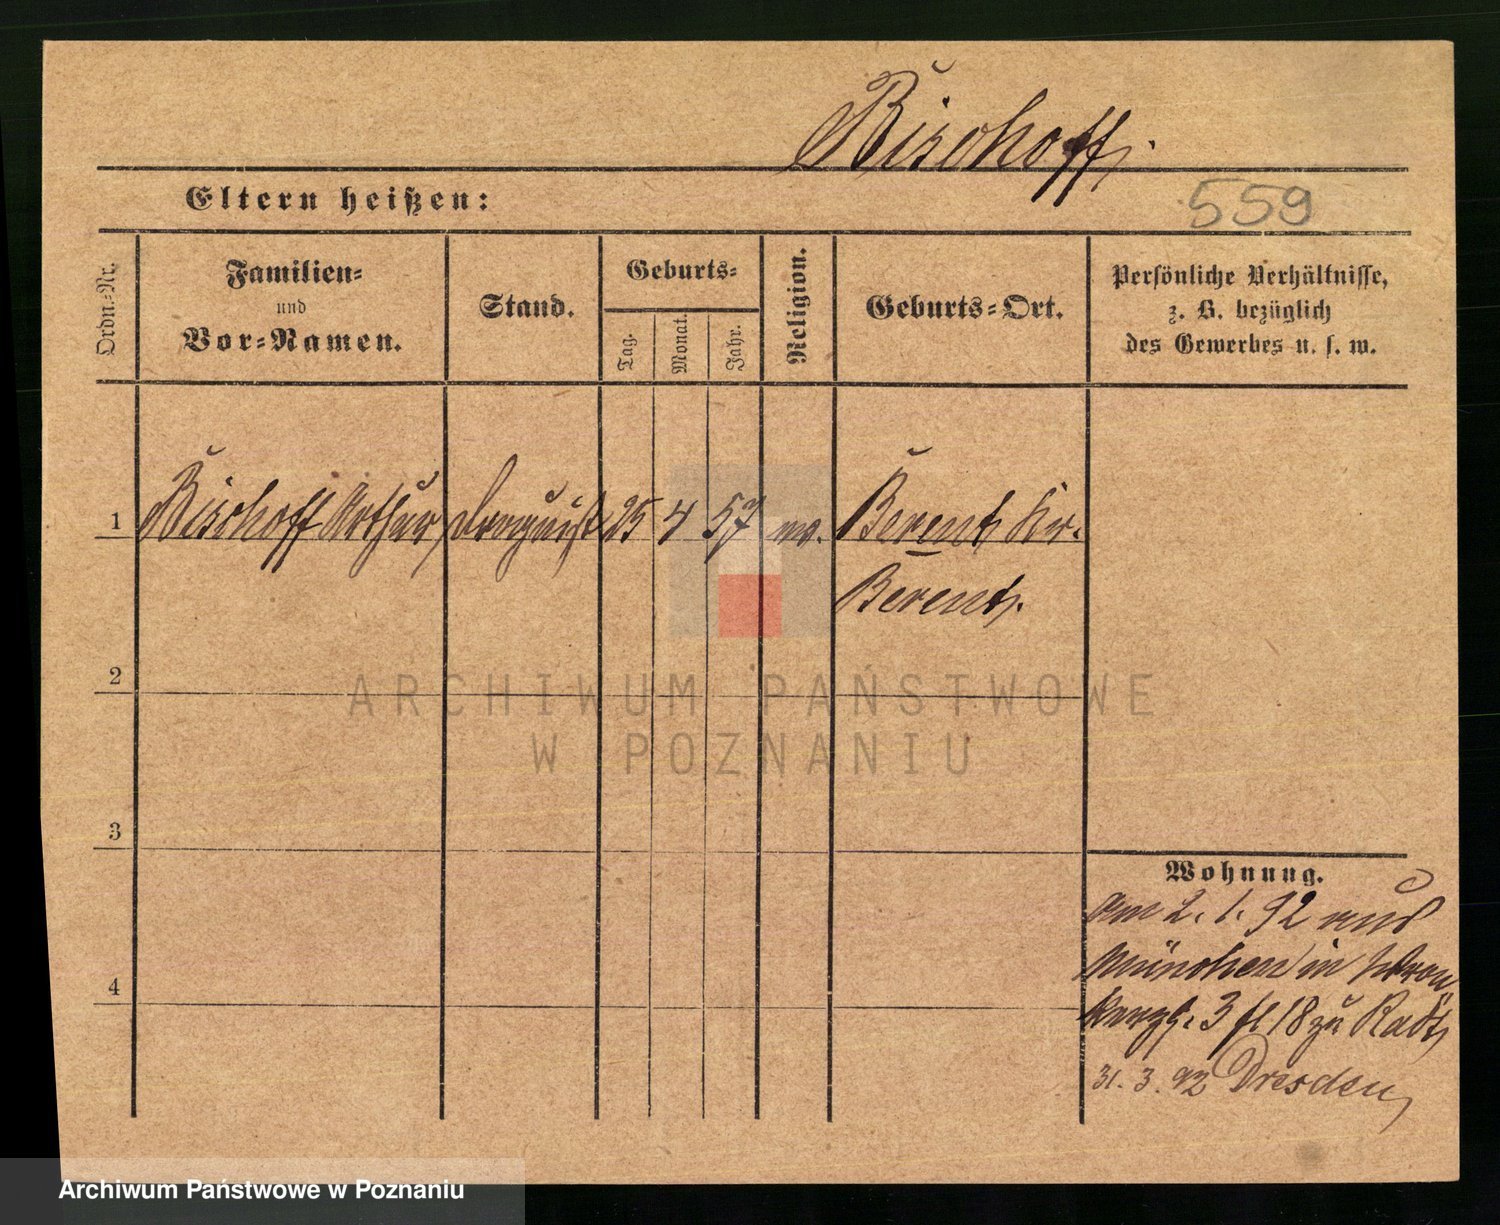 Bischoff.
Eltern heißen:
559
Ordn.-Nr.
Familien-
und
Vor-Namen.
Stand.
Geburts-
Tag.
Monat.
Jahr.
Religion.
Geburts-Ort.
Persönliche Verhältnisse,
z. B. bezüglich
des Gewerbes u. s. w.
1 Bischoff Arthur Droguist 25 4 57 Berent Kr.
Berent.
2
3
4
Wohnung.
am 2. 1. 92 aus
München in
3 18 zu
31. 3. 92 Dresden
ARCHIWUM PAŃSTWOWE
W POZNANIU
Archiwum Państwowe w Poznaniu